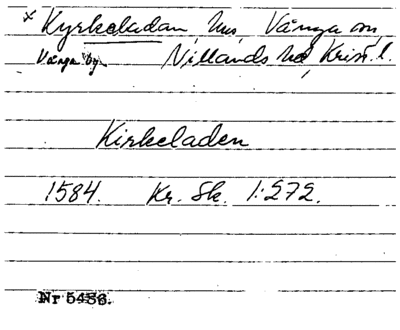 × Kyrkeladan, hus, Vånga sn,
Vånga by. Villands hd, Krist. l.
Kirkeladen
1584. Kr. Sk. 1:272.
Nr 5436.